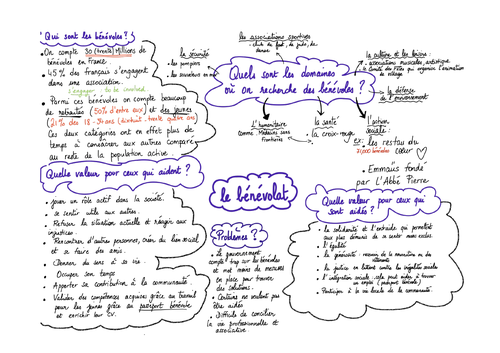 Qui sont les bénévoles ?
• On compte 30 (trente) Millions de
bénévoles en France.
• 45% des français s'engagent
dans une association.
s'engager : to be involved
• Parmi ces bénévoles on compte beaucoup
de retraités (50% d'entre eux) et des jeunes
(21% des 18-30 ans
Ces deux catégories ont en effet plus de
temps à consacrer aux autres comparé
au reste de la population active
Quelle valeur pour ceux qui aident ?
• jouer un rôle actif dans la société.
• se sentir utile aux autres
• Refuser la situation actuelle et réagir aux
injustices
• Rencontrer d'autres personnes, créer du lien
et se faire des amis.
• Donner du sens à sa vie.
• Occuper son temps
• Apporter sa contribution à la communauté.
• Valider des compétences acquises grâce au travail
pour les jeunes grâce au passeport bénévole
et enrichir leur CV.
la sécurité
• les pompiers
• les sauveteurs en mer
les associations sportives
• club de foot, de judo, de
danse.
Quels sont les domaines
où on recherche des bénévoles ?
la culture et les loisirs :
• associations musicales, artistiques
• le Comité des Fêtes qui organise l'animation
de village
la défense
de l'environnement
L'humanitaire
comme : Médecins sans
Frontières
la santé
la croix-rouge
l'action
sociale :
ex : les restau du
cœur
bénévoles
• Emmaüs fondé
par L'Abbé Pierre
le bénévolat
Problèmes ?
• Le gouvernement
compte trop sur les bénévoles
et met moins de mesures
en place pour trouver
des solutions.
• Certains ne veulent pas
être aidés
• Difficile de concilier
la vie professionnelle et
associative
Quelle valeur pour ceux qui
sont aidés ?
• la solidarité et l'entraide qui permettent
aux plus démunis de se sentir moins exclus
• l'égalité
• la générosité : recevoir de la nourriture ou des
vêtements
• la justice en luttant contre les inégalités sociales
• l'intégration sociale :
un emploi
• Participer à la vie locale de la communauté.